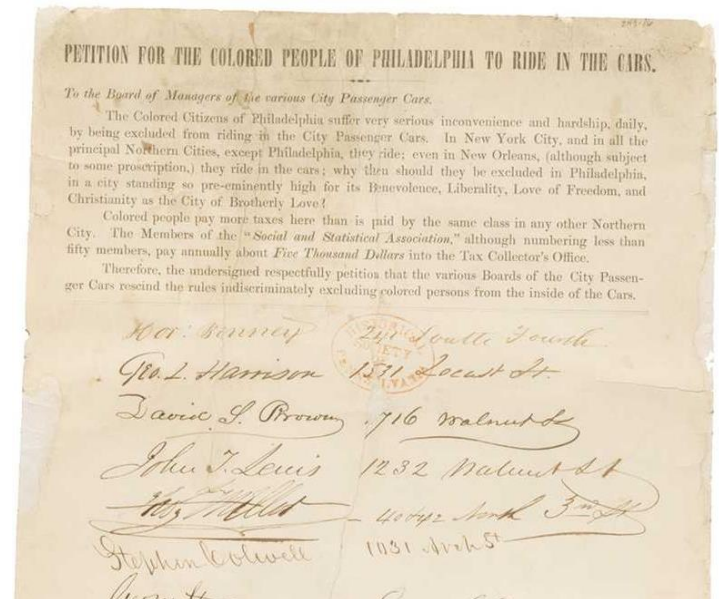 PETITION FOR THE COLORED PEOPLE OF PHILADELPHIA TO RIDE IN THE CARS.
To the Board of Managers of the various City Passenger Cars.
The Colored Citizens of Philadelphia suffer very serious inconvenience and hardship, daily,
by being excluded from riding in the City Passenger Cars. In New York City, and in all the
principal Northern Cities, except Philadelphia, they ride; even in New Orleans, (although subject
to some proscription,) they ride in the cars; why then should they be excluded in Philadelphia,
in a city standing so pre-eminently high for its Benevolence, Liberality, Love of Freedom, and
Christianity as the City of Brotherly Love?
Colored people pay more taxes here than is paid by the same class in any other Northern
City. The Members of the "Social and Statistical Association," although numbering less than
fifty members, pay annually about Five Thousand Dollars into the Tax Collector's Office.
Therefore, the undersigned respectfully petition that the various Boards of the City Passen-
ger Cars rescind the rules indiscriminately excluding colored persons from the inside of the Cars.
Hor: Binney South Fourth
HISTORICAL SOCIETY
Geo. L. Harrison Locust St.
David S. Brown 716 Walnut St
John T. Lewis 1232 Walnut St
North 3rd St
Stephen Colwell 1031 Arch St